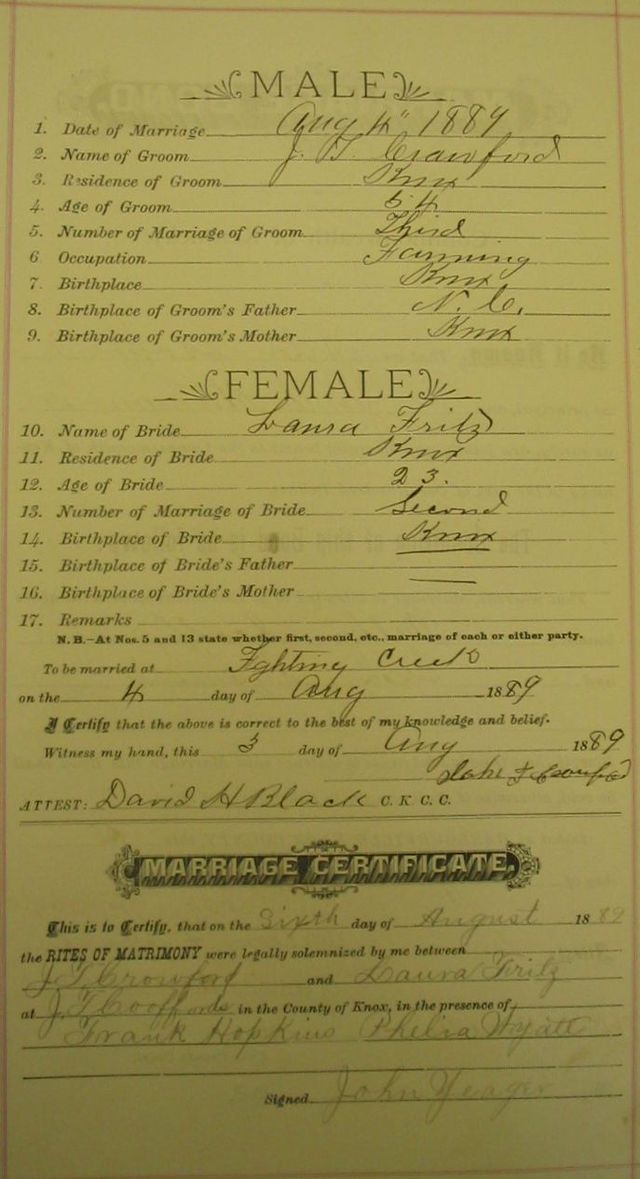 MALE
1. Date of Marriage Aug 4" 1889
2. Name of Groom J. T. Crawford
3. Residence of Groom Knox
4. Age of Groom 54
5. Number of Marriage of Groom Third
6 Occupation Farming
7. Birthplace Knox
8. Birthplace of Groom's Father N. C.
9. Birthplace of Groom's Mother Knox
FEMALE
10. Name of Bride Laura Fritz
11. Residence of Bride Knox
12. Age of Bride 23.
13. Number of Marriage of Bride Second
14. Birthplace of Bride Knox
15. Birthplace of Bride's Father
16. Birthplace of Bride's Mother
17. Remarks
N. B.—At Nos. 5 and 13 state whether first, second, etc., marriage of each or either party.
To be married at Fighting Creek
on the 4 day of Aug 1889
I Certify that the above is correct to the best of my knowledge and belief.
Witness my hand, this 3 day of Aug 1889
ATTEST: David H Black C. K. C. C.
MARRIAGE CERTIFICATE.
This is to Certify, that on the Sixth day of August 1889
the RITES OF MATRIMONY were legally solemnized by me between
J. T. Crowford and Laura Fritz
at J. T. in the County of Knox, in the presence of
Frank Hopkins Wyatt
Signed John Yeager